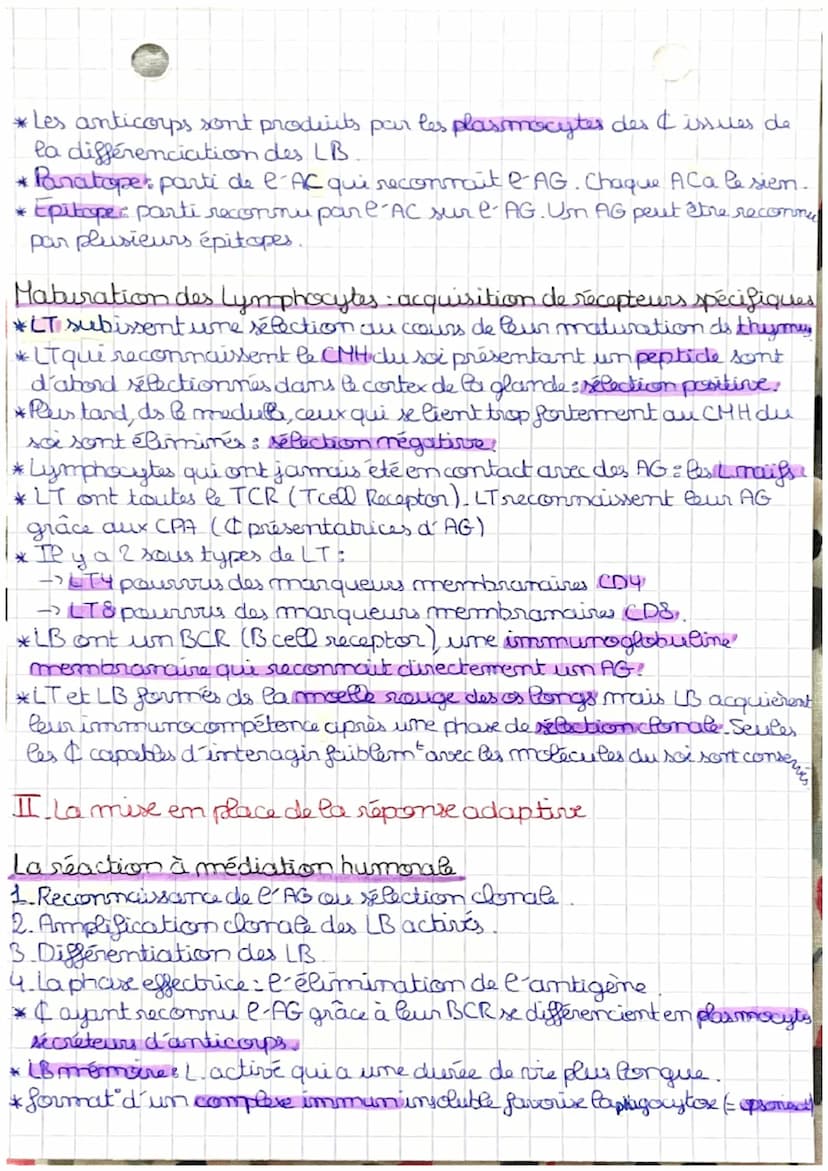 * Les anticorps sont produits par les plasmocytes des ₵ issues de
la différenciation des LB.
* Paratope : parti de l'AC qui reconnait l'AG. Chaque AC a le sien.
* Epitope : parti reconnu par l'AC sur l'AG. Un AG peut être reconnu
par plusieurs épitopes.
Maturation des Lymphocytes : acquisition de récepteurs spécifiques
* LT subissent une sélection au cours de leur maturation ds thymus
* LT qui reconnaissent le CMH du soi présentant un peptide sont
d'abord sélectionnés dans le cortex de la glande : sélection positive.
* Plus tard, ds la medulla, ceux qui se lient trop fortement au CMH du
soi sont éliminés : sélection négative.
* Lymphocytes qui ont jamais été en contact avec des AG = les L naifs.
* LT ont toutes le TCR (T cell Receptor). LT reconnaissent leur AG
grâce aux CPA (₵ présentatrices d'AG)
* Il y a 2 sous types de LT :
→ LT4 pourvus des marqueurs membranaires CD4
→ LT8 pourvus des marqueurs membranaires CD8.
* LB ont un BCR (B cell receptor), une immunoglobuline
membranaire qui reconnait directement un AG.
* LT et LB formés ds la moelle rouge des os longs mais LB acquièrent
leur immunocompétence après une phase de sélection clonale. Seules
les ₵ capables d'interagir faiblemt avec les molécules du soi sont conservés
II. La mise en place de la réponse adaptive
La réaction à médiation humorale
1. Reconnaissance de l'AG ou sélection clonale.
2. Amplification clonale des LB activés.
3. Différentiation des LB.
4. La phase effectrice : l'élimination de l'antigène.
* ₵ ayant reconnu l'AG grâce à leur BCR se différencient en plasmocyts
sécréteurs d'anticorps.
* LB mémoire : L. activé qui a une durée de vie plus longue.
* format° d'un complexe immun insoluble favorise la phagocytose (=